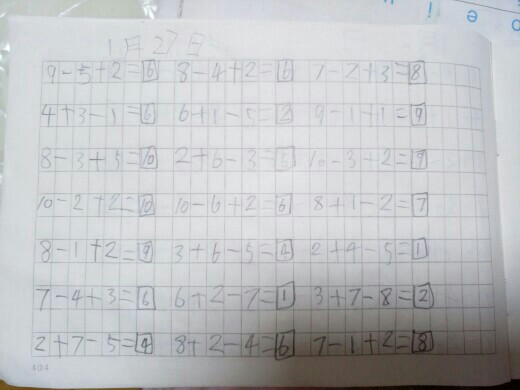 1月27日
9-5+2=6 8-4+2=6 7-2+3=8
4+3-1=6 6+1-5=2 9-1+1=9
8-3+5=10 2+6-3=5 10-3-2=9
10-2+2=10 10-6+2=6 8+1-2=7
8-1+2=9 3+6-5=4 2+4-5=1
7-4+3=6 6+2-7=1 3+7-8=2
2+7-5=4 8+2-4=6 7-1+2=8